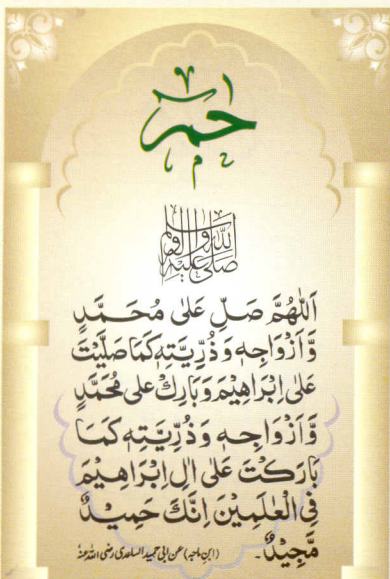 حٰمٓ
صلی اللہ علیہ وآلہ وسلم
اَللّٰهُمَّ صَلِّ عَلٰى مُحَمَّدٍ
وَّاَزْوَاجِهٖ وَذُرِّيَّتِهٖ كَمَا صَلَّيْتَ
عَلٰى اِبْرَاهِيْمَ وَبَارِكْ عَلٰى مُحَمَّدٍ
وَّاَزْوَاجِهٖ وَذُرِّيَّتِهٖ كَمَا
بَارَكْتَ عَلٰى اٰلِ اِبْرَاهِيْمَ
فِى الْعٰلَمِيْنَ اِنَّكَ حَمِيْدٌ
مَّجِيْدٌ۔ (ابنِ ماجہ) عن ابی حمید الساعدی رضی اللہ عنہٗ